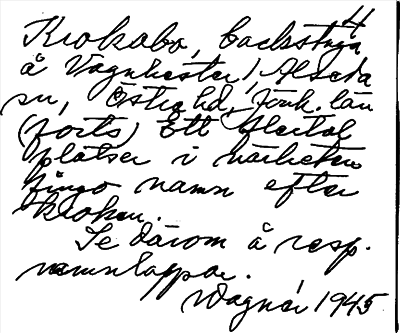 4
Krokabo, backstuga
å Vagnhester, Alseda
sn, Östra hd, Jönk. län
(forts) Ett flertal
platser i närheten
fingo namn efter
kroken.
Se därom å resp.
namnlappar.
Wagnér 1945